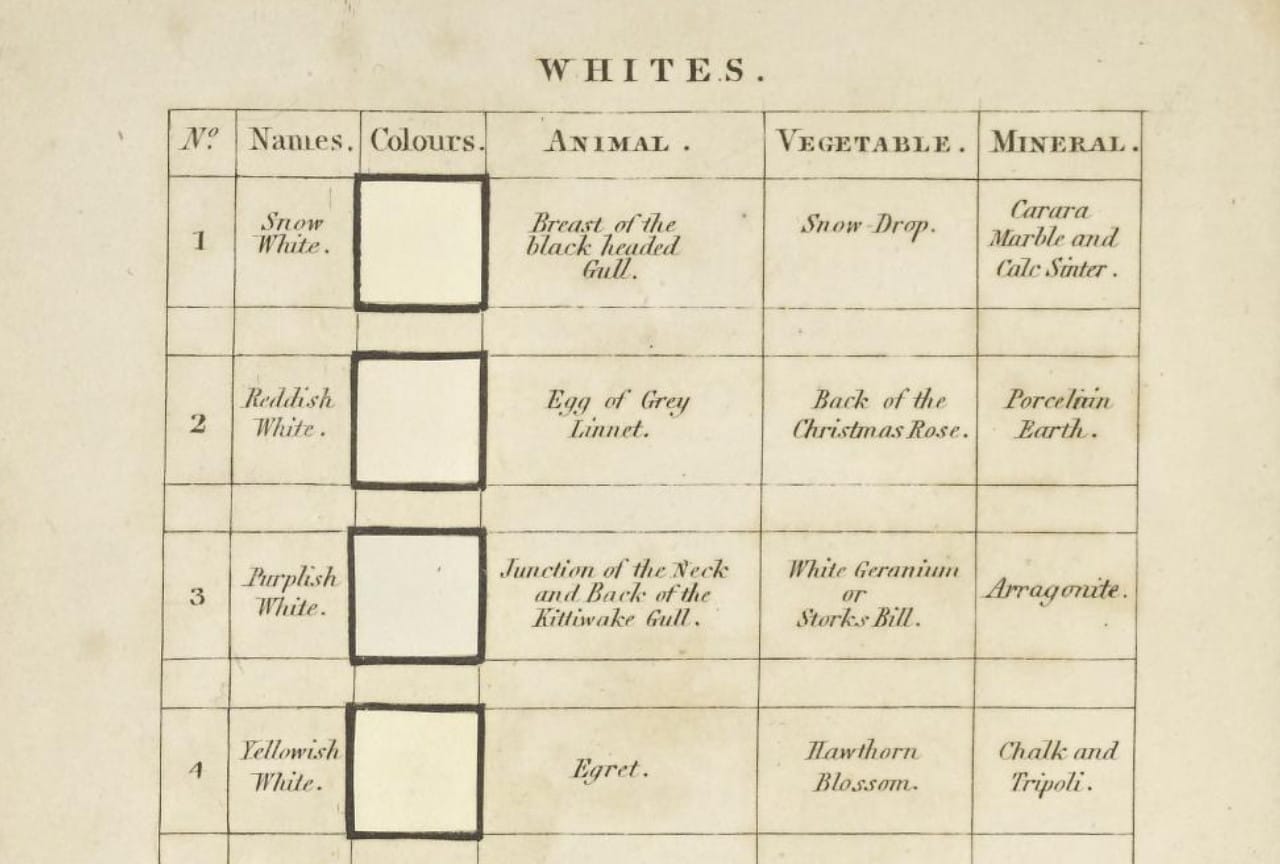 WHITES.
No. Names. Colours. ANIMAL. VEGETABLE. MINERAL.
1
Snow
White.
Breast of the
black headed
Gull.
Snow-Drop.
Carara
Marble and
Calc Sinter.
2
Reddish
White.
Egg of Grey
Linnet.
Back of the
Christmas Rose.
Porcelain
Earth.
3
Purplish
White.
Junction of the Neck
and Back of the
Kittiwake Gull.
White Geranium
or
Storks Bill.
Arragonite.
4
Yellowish
White.
Egret.
Hawthorn
Blossom.
Chalk and
Tripoli.